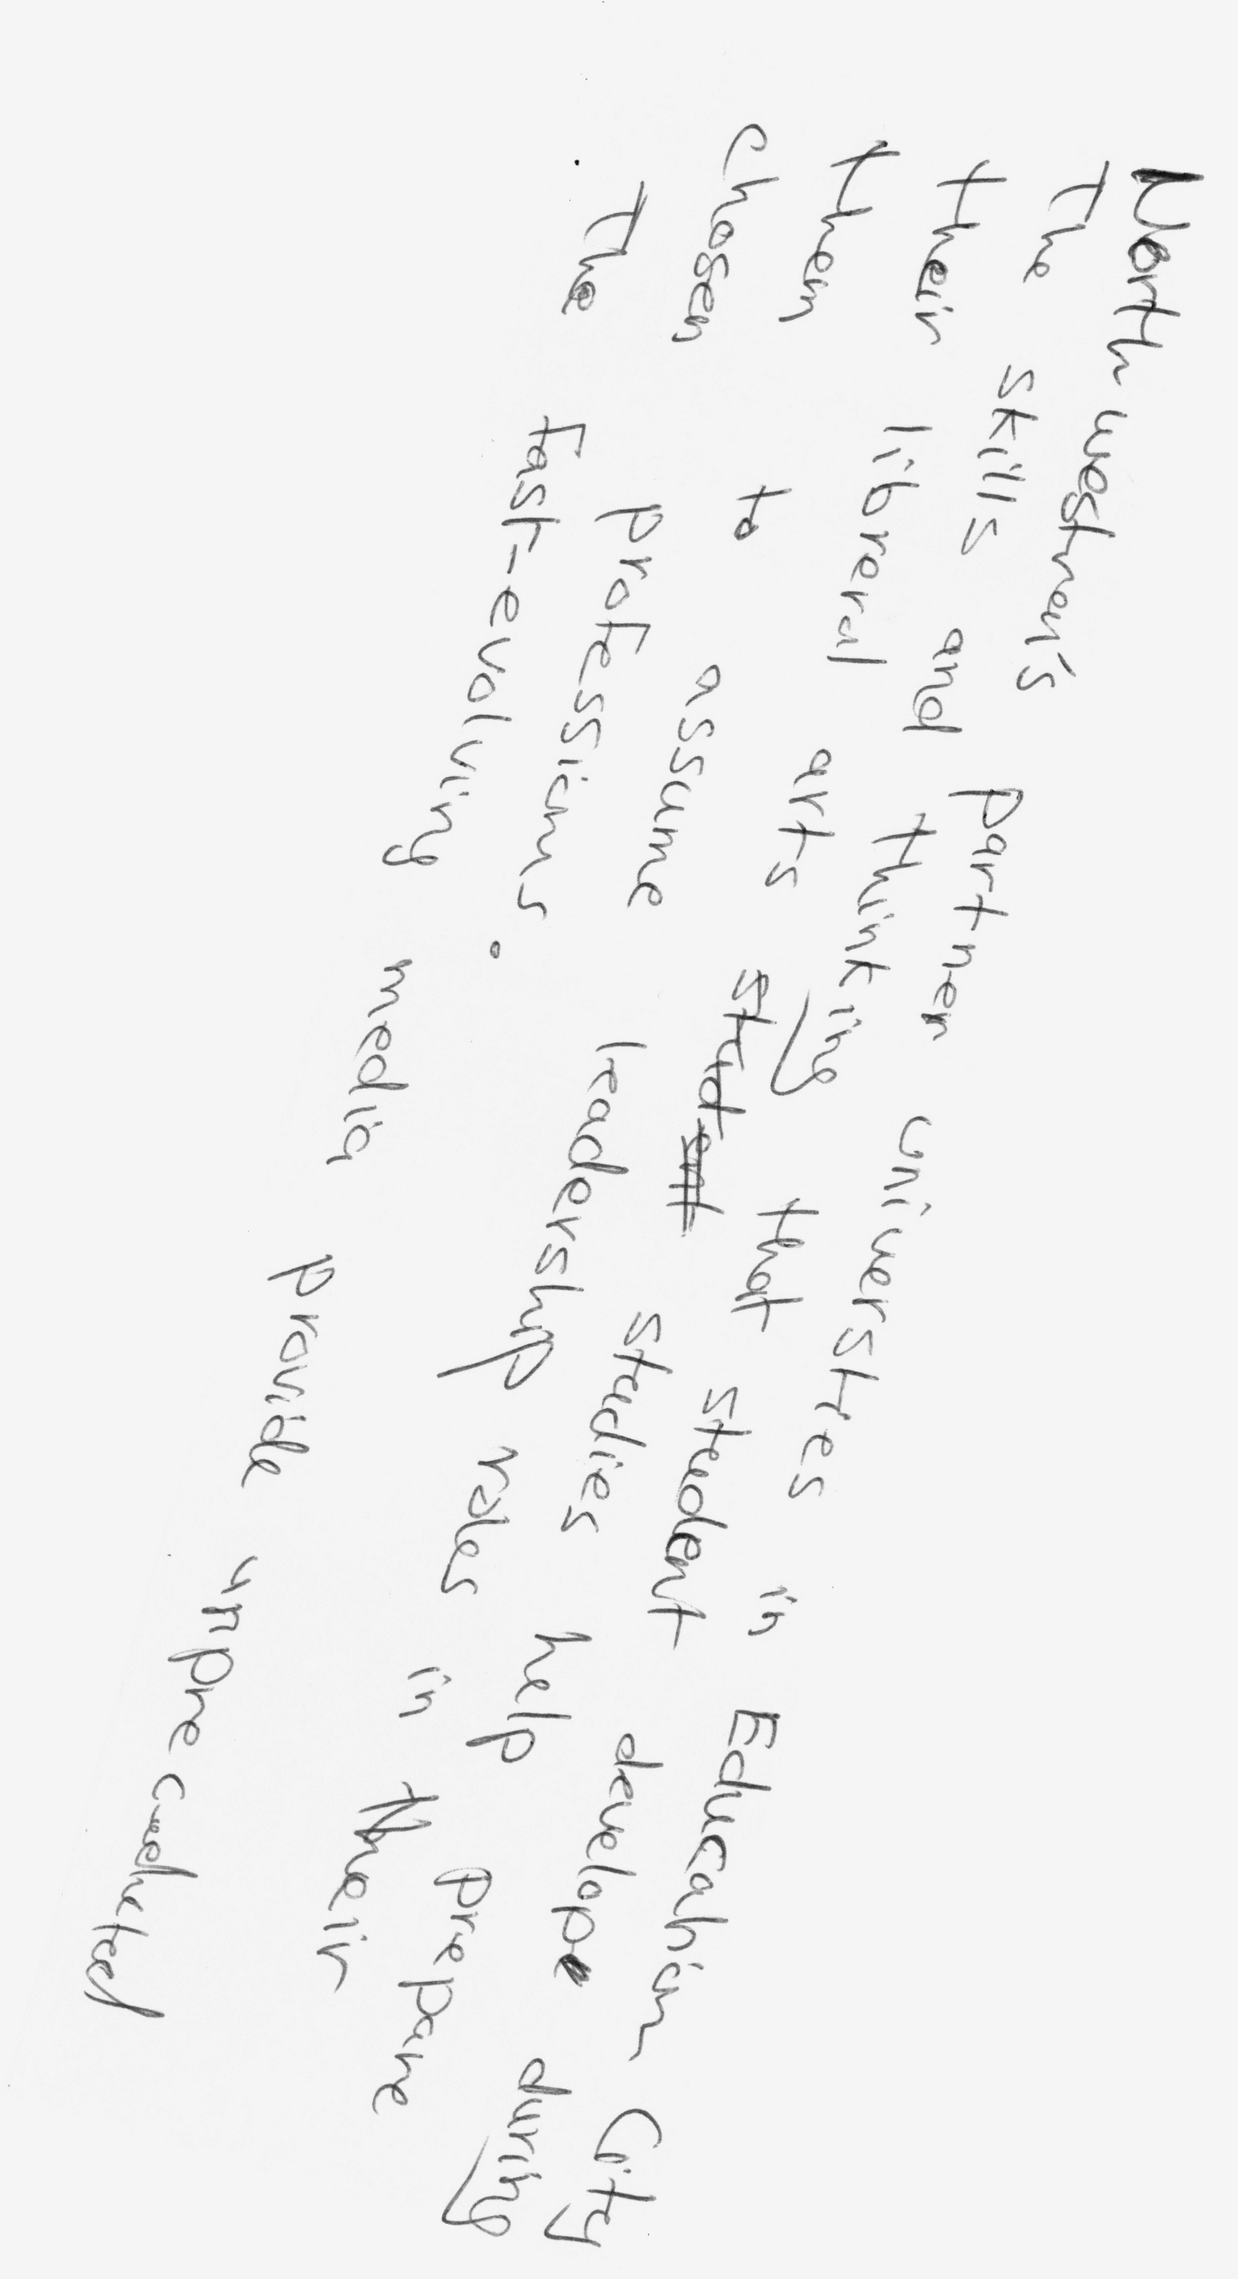 Northwestren's Partner universties in Education City
The skills and thinking that student develope during
their liberal arts studies help prepare
them to assume leadership roles in their
chosen professions.
The fast-evolving media provide